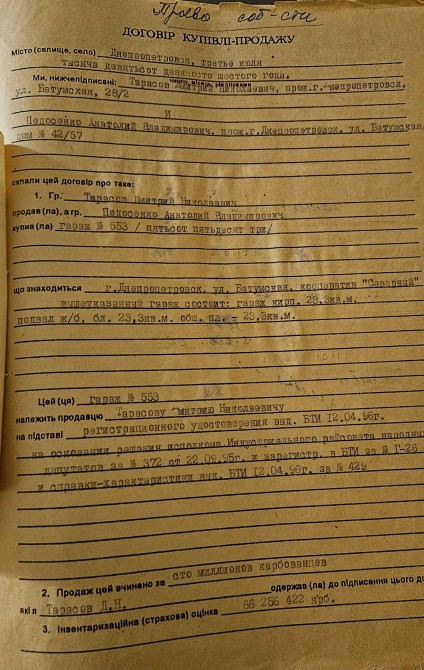 Право соб-сти
ДОГОВІР КУПІВЛІ-ПРОДАЖУ
Місто (селище, село) Днепропетровск, третье июля
тысяча девятьсот девяносто шестого года.
число, місяць, рік словами
Ми, нижчепідписані: Тарасов Дмитрий Николаевич, прож.г.Днепропетровск,
ул. Батумская, 28/2
И
Пепосенко Анатолий Владимирович, прож.г.Днепропетровск, ул. Батумская,
дом № 42/57
склали цей договір про таке:
1. Гр. Тарасов Дмитрий Николаевич
продав (ла), а гр. Пепосенко Анатолий Владимирович
купив (ла) гараж № 553 / пятьсот пятьдесят три/
що знаходиться г.Днепропетровск, ул. Батумская, кооператив "Северный"
вышеуказанный гараж состоит: гараж кирп. 23,3кв.м.
подвал ж/б. бл. 23,3кв.м. общ. пл. - 23,3кв.м.
Цей (ця) гараж № 553
належить продавцю Тарасову Дмитрию Николаевичу
на підставі регистрационного удостоверения выд. БТИ 12.04.96г.
на основании решения исполкома Индустриального райсовета народных
депутатов за № 372 от 22.09.95г. и зарегистр. в БТИ за № Г-26
и справки-характеристики выд. БТИ 12.04.96г. за № 429
2. Продаж цей вчинено за сто миллионов карбованцев
які я Тарасов Д.Н. одержав (ла) до підписання цього до
3. Інвентаризаційна (страхова) оцінка 66 256 422 крб.